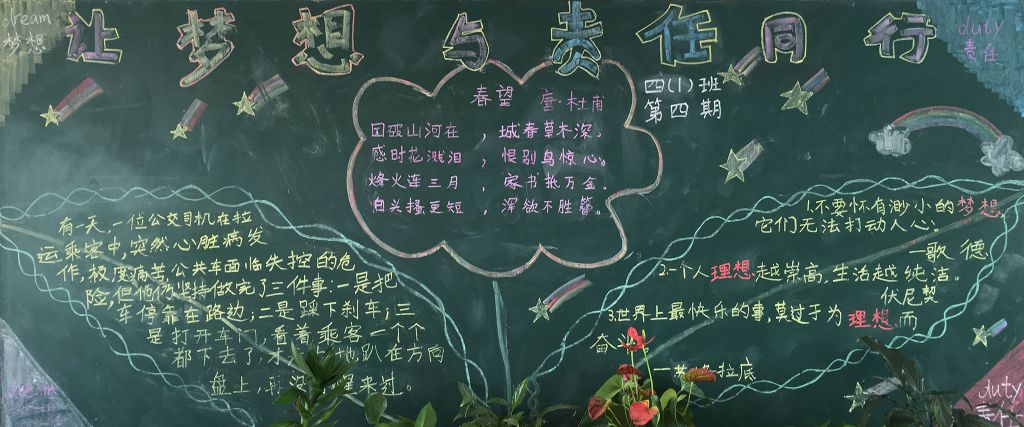 dream
梦想
让梦想与责任同行
duty
责任
四(1)班
第四期
春望 唐·杜甫
国破山河在，城春草木深。
感时花溅泪，恨别鸟惊心。
烽火连三月，家书抵万金。
白头搔更短，浑欲不胜簪。
有一天，一位公交司机在拉
运乘客中，突然心脏病发
作，极度痛苦公共车面临失控的危
险，但他仍坚持做完了三件事：一是把
车停靠在路边；二是踩下刹车；三
是打开车门看着乘客一个个
都下去了，才 地趴在方向
盘上，再没 醒来过。
1.不要怀有渺小的梦想，
它们无法打动人心。
—歌德
2.一个人理想越崇高，生活越纯洁。
伏尼契
3.世界上最快乐的事，莫过于为理想而
奋
—苏 拉底
duty
责任